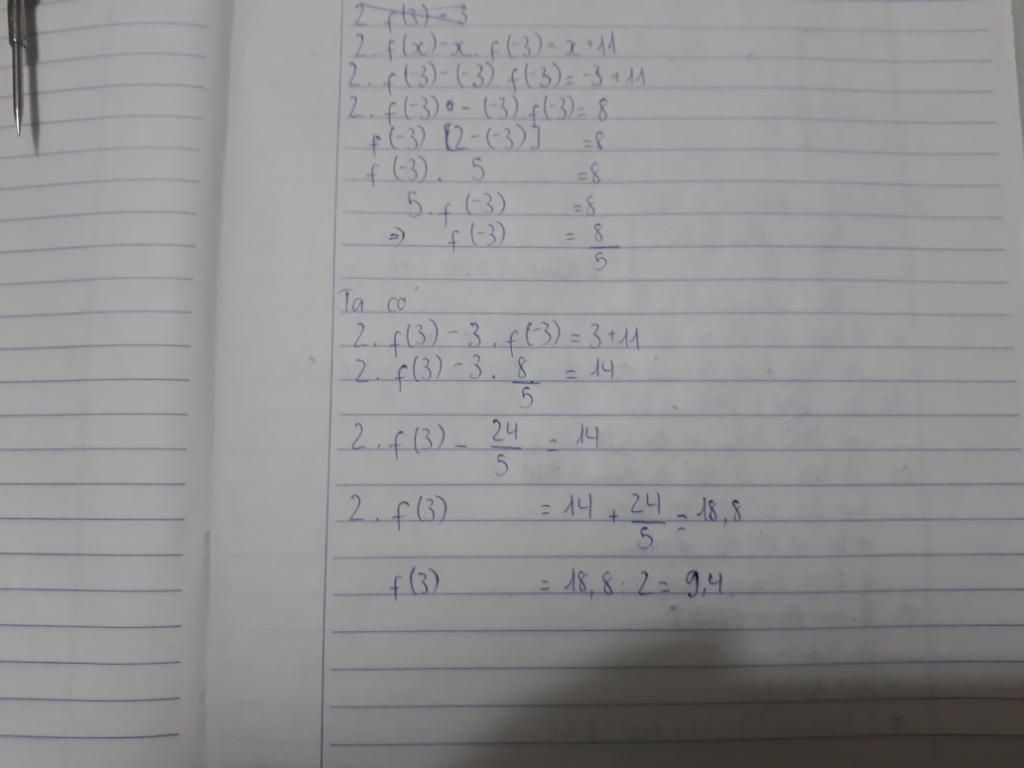 2 f(3) = 3
2. f(x) - x. f(-3) = x + 11
2. f(-3) - (-3) f(-3) = -3 + 11
2. f(-3) - (-3) f(-3) = 8
f(-3) [2 - (-3)] = 8
f(-3) . 5 = 8
5. f(-3) = 8
=> f(-3) = 8/5
Ta có
2. f(3) - 3. f(-3) = 3 + 11
2. f(3) - 3. 8/5 = 14
2. f(3) - 24/5 = 14
2. f(3) = 14 + 24/5 = 18,8
f(3) = 18,8 : 2 = 9,4